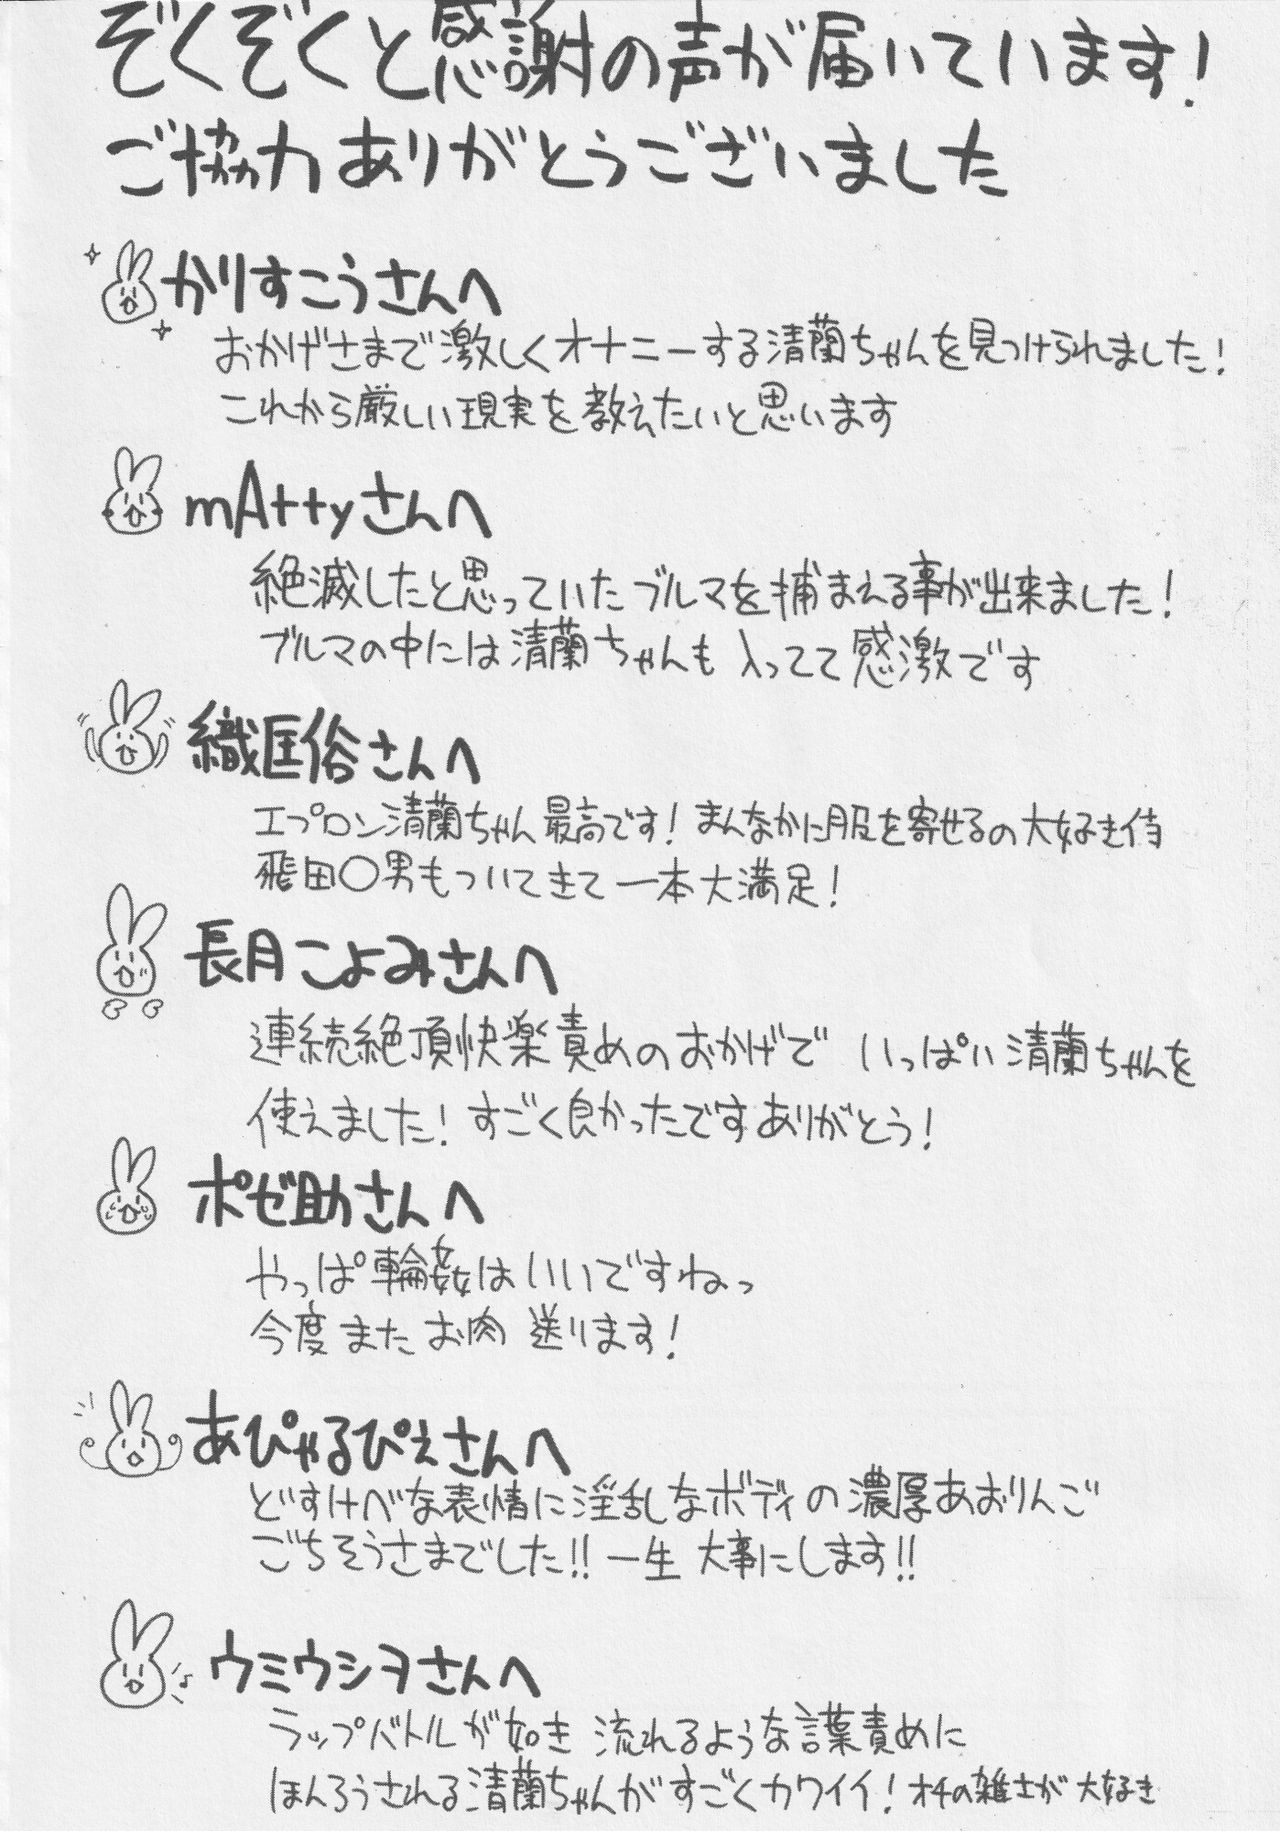 ぞくぞくと感謝の声が届いています!
ご協力ありがとうございました
かりすこうさんへ
おかげさまで激しくオナニーする清蘭ちゃんを見つけられました!
これから厳しい現実を教えたいと思います
mAttyさんへ
絶滅したと思っていたブルマを捕まえる事が出来ました!
ブルマの中には清蘭ちゃんも入ってて感激です
織匡俗さんへ
エプロン清蘭ちゃん最高です!まんなかに服を寄せるの大好き侍
飛田○男もついてきて一本大満足!
長月こよみさんへ
連続絶頂快楽責めのおかげで いっぱい清蘭ちゃんを
使えました!すごく良かったですありがとう!
ポゼ助さんへ
やっぱ輪姦はいいですねっ
今度またお肉送ります!
あぴゃるぴえさんへ
どすけべな表情に淫乱なボディの濃厚あおりんご
ごちそうさまでした!!一生大事にします!!
ウミウシヲさんへ
ラップバトルが如き 流れるような言葉責めに
ほんろうされる清蘭ちゃんがすごくカワイイ!オチの雑さが大好き